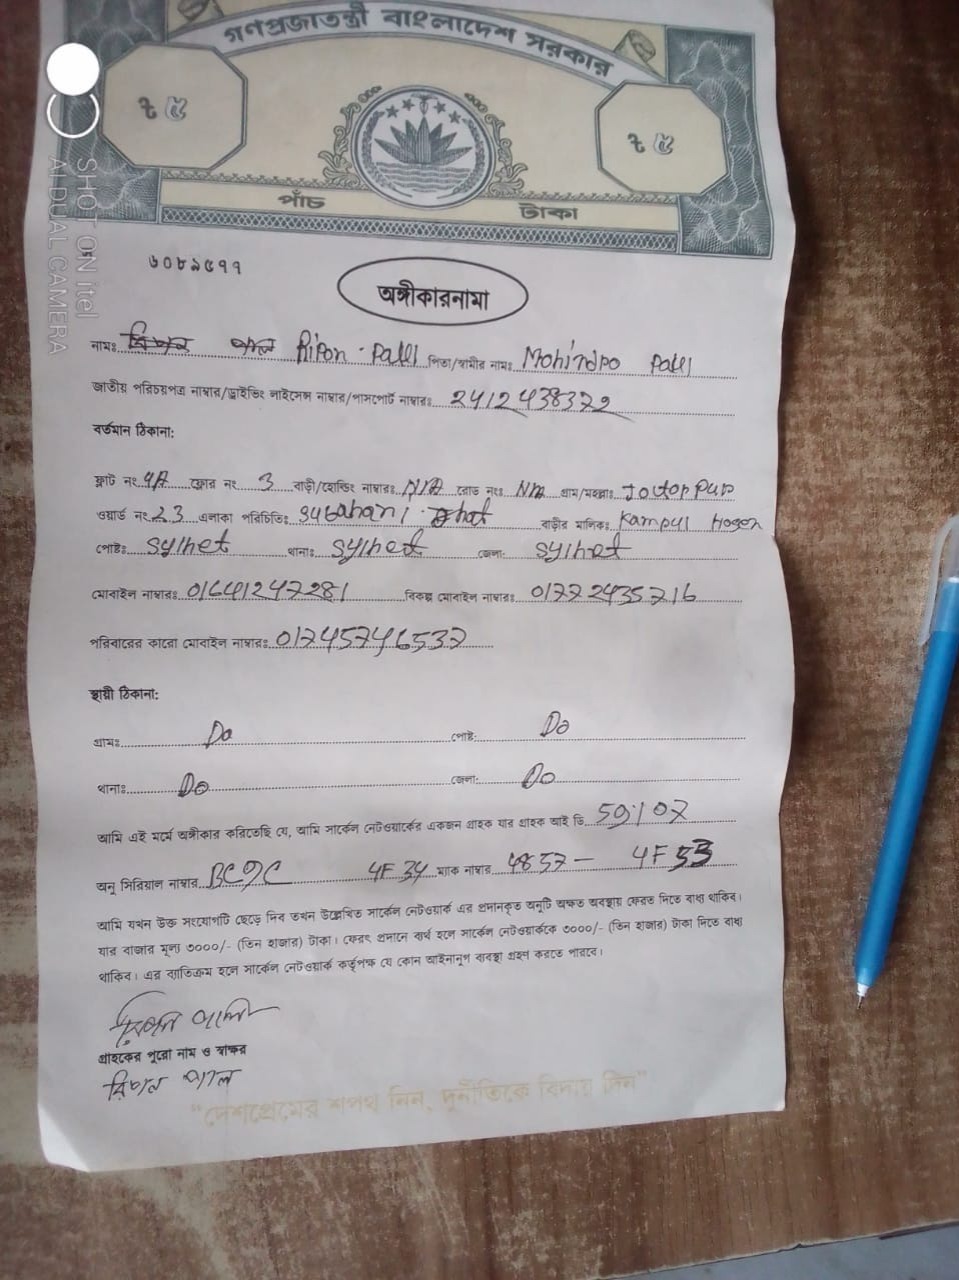 গণপ্রজাতন্ত্রী বাংলাদেশ সরকার
৳ ৫
৳ ৫
পাঁচ টাকা
৬০৮৯৫৭৭
অঙ্গীকারনামা
নামঃ রিপন পাল Ripon Paul পিতা/স্বামীর নামঃ Mohindro Paul
জাতীয় পরিচয়পত্র নাম্বার/ড্রাইভিং লাইসেন্স নাম্বার/পাসপোর্ট নাম্বারঃ 2412438372
বর্তমান ঠিকানা:
ফ্লাট নং 4A ফ্লোর নং 3 বাড়ী/হোল্ডিং নাম্বারঃ N/A রোড নংঃ N/A গ্রাম/মহল্লাঃ
ওয়ার্ড নং 23 এলাকা পরিচিতিঃ Subahani ghat বাড়ীর মালিকঃ
পোষ্টঃ Sylhet থানাঃ Sylhet জেলা: Sylhet
মোবাইল নাম্বারঃ 01641247281 বিকল্প মোবাইল নাম্বারঃ 01772435716
পরিবারের কারো মোবাইল নাম্বারঃ 01745746537
স্থায়ী ঠিকানা:
গ্রামঃ Do পোষ্ট: Do
থানাঃ Do জেলা: Do
আমি এই মর্মে অঙ্গীকার করিতেছি যে, আমি সার্কেল নেটওয়ার্কের একজন গ্রাহক যার গ্রাহক আই ডি
অনু সিরিয়াল নাম্বার 4F 34 ম্যাক নাম্বার 4857 - 4F 53
আমি যখন উক্ত সংযোগটি ছেড়ে দিব তখন উল্লেখিত সার্কেল নেটওয়ার্ক এর প্রদানকৃত অনুটি অক্ষত অবস্থায় ফেরত দিতে বাধ্য থাকিব।
যার বাজার মূল্য ৩০০০/- (তিন হাজার) টাকা। ফেরৎ প্রদানে ব্যর্থ হলে সার্কেল নেটওয়ার্ককে ৩০০০/- (তিন হাজার) টাকা দিতে বাধ্য
থাকিব। এর ব্যতিক্রম হলে সার্কেল নেটওয়ার্ক কর্তৃপক্ষ যে কোন আইনানুগ ব্যবস্থা গ্রহন করতে পারবে।
গ্রাহকের পুরো নাম ও স্বাক্ষর
রিপন পাল
"দেশপ্রেমের শপথ নিন, দুর্নীতিকে বিদায় দিন"
SHOT ON itel
AI DUAL CAMERA